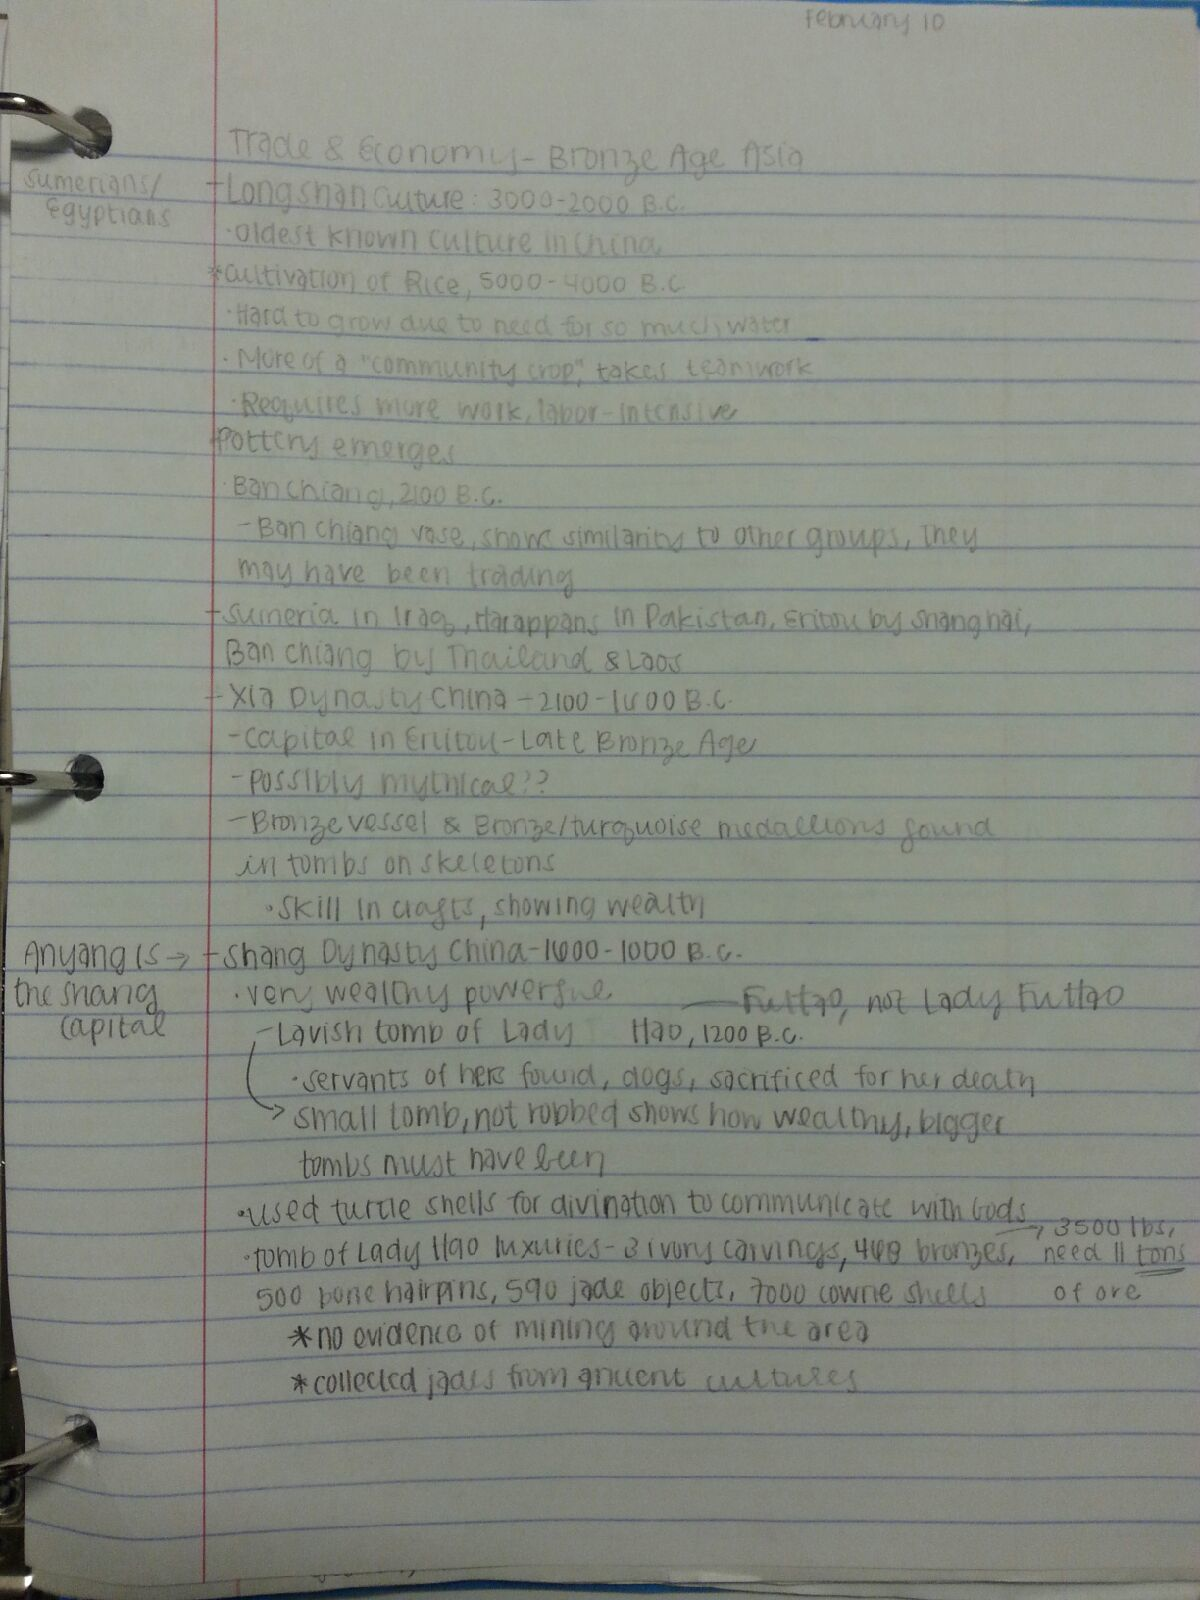 February 10
Trade & Economy - Bronze Age Asia
Sumerians/
Egyptians
- Longshan Culture: 3000-2000 B.C.
· oldest known culture in China
* Cultivation of Rice, 5000-4000 B.C.
· Hard to grow due to need for so much water
· More of a "community crop", takes teamwork
· Requires more work, labor-intensive
Pottery emerges
· Ban Chiang, 2100 B.C.
- Ban Chiang vase, shows similarity to other groups, they
may have been trading
- Sumeria in Iraq, Harappans in Pakistan, Erlitou by Shanghai,
Ban Chiang by Thailand & Laos
- Xia Dynasty China - 2100-1600 B.C.
- capital in Erlitou - Late Bronze Age
- possibly mythical??
- Bronze vessel & Bronze/turquoise medallions found
in tombs on skeletons
· skill in crafts, showing wealth
Anyang is →
the Shang
capital
- Shang Dynasty China - 1600-1000 B.C.
· very wealthy powerful
— FuHao, not Lady FuHao
- Lavish tomb of Lady Hao, 1200 B.C.
· servants of hers found, dogs, sacrificed for her death
→ small tomb, not robbed shows how wealthy, bigger
tombs must have been
· used turtle shells for divination to communicate with Gods
· tomb of Lady Hao luxuries - 3 ivory carvings, 468 bronzes,
→ 3500 lbs,
need 11 tons
of ore
500 bone hairpins, 590 jade objects, 7000 cowrie shells
* no evidence of mining around the area
* collected jades from ancient cultures